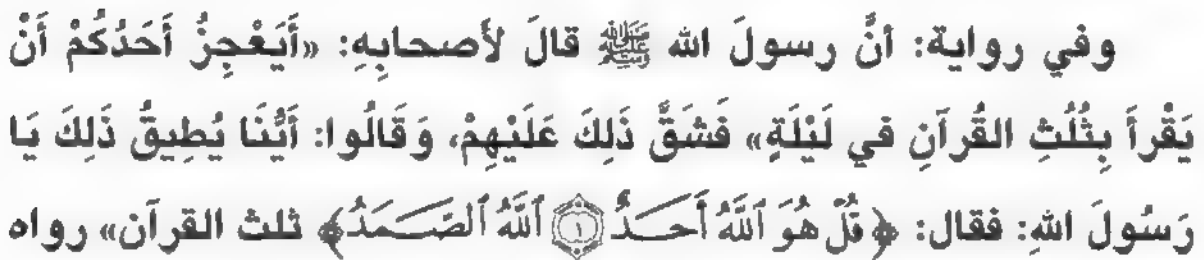 وفي رواية: أنَّ رسولَ الله ﷺ قالَ لأصحابِهِ: «أَيَعْجِزُ أَحَدُكُمْ أَنْ
يَقْرأَ بِثُلُثِ القُرآنِ في لَيْلَةٍ» فَشَقَّ ذَلِكَ عَلَيْهِمْ، وَقَالُوا: أَيُّنَا يُطِيقُ ذَلِكَ يَا
رَسُولَ اللهِ: فقال: ﴿قُلْ هُوَ ٱللَّهُ أَحَدٌ ۝١ ٱللَّهُ ٱلصَّمَدُ﴾ ثلث القرآن» رواه